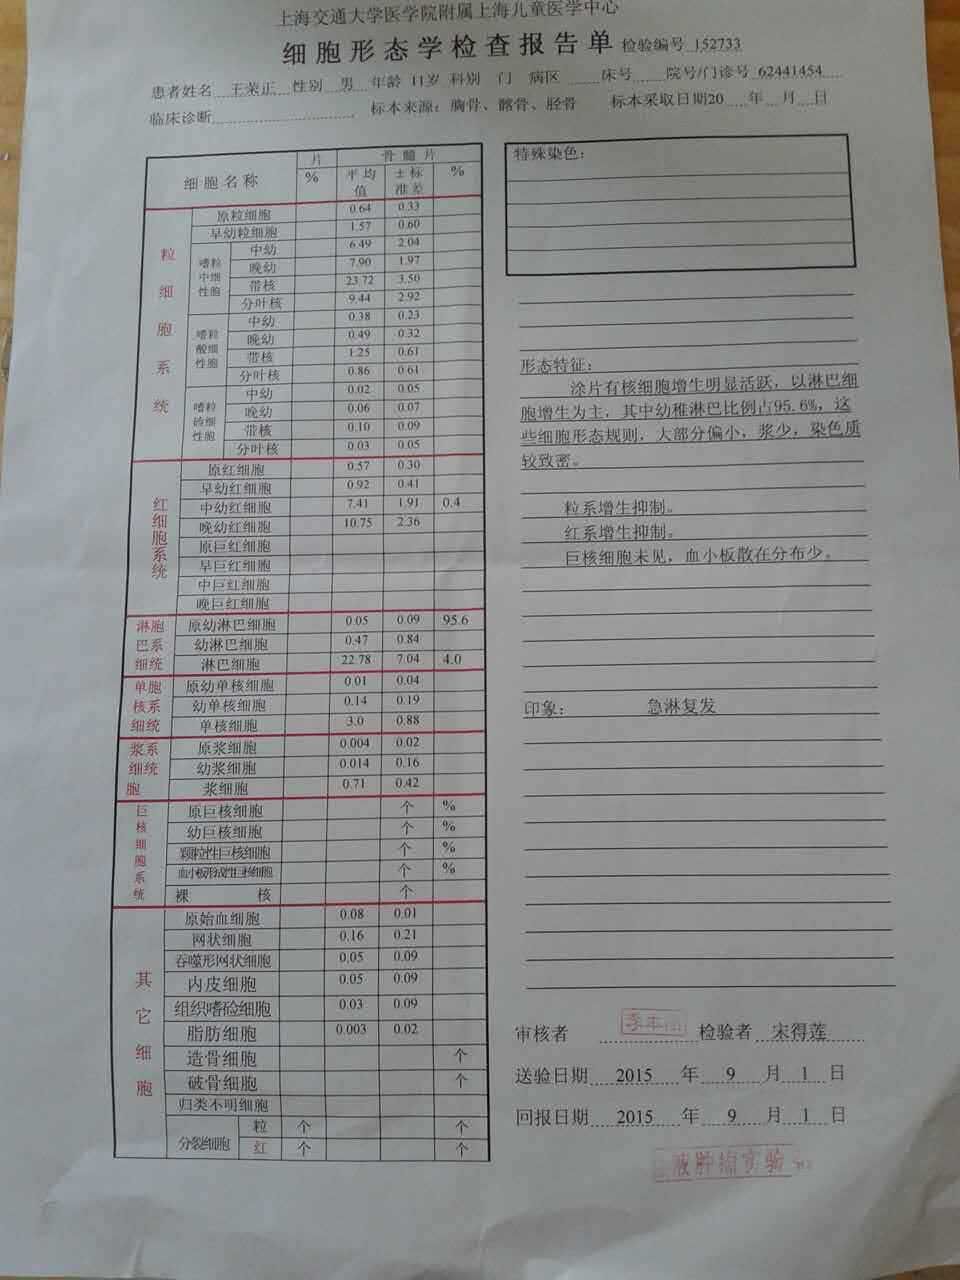 上海交通大学医学院附属上海儿童医学中心
细胞形态学检查报告单 检验编号 152733
患者姓名 王荣正 性别 男 年龄 11岁 科别 门 病区 床号 院号/门诊号 62441454
临床诊断 标本来源：胸骨、髂骨、胫骨 标本采取日期20 年 月 日
细胞名称 片 % 骨髓片 平均值 ±标准差 %
粒细胞系统
原粒细胞 0.64 0.33
早幼粒细胞 1.57 0.60
嗜中性粒细胞
中幼 6.49 2.04
晚幼 7.90 1.97
带核 23.72 3.50
分叶核 9.44 2.92
嗜酸性粒细胞
中幼 0.38 0.23
晚幼 0.49 0.32
带核 1.25 0.61
分叶核 0.86 0.61
嗜硷性粒细胞
中幼 0.02 0.05
晚幼 0.06 0.07
带核 0.10 0.09
分叶核 0.03 0.05
红细胞系统
原红细胞 0.57 0.30
早幼红细胞 0.92 0.41
中幼红细胞 7.41 1.91 0.4
晚幼红细胞 10.75 2.36
原巨红细胞
早巨红细胞
中巨红细胞
晚巨红细胞
淋巴细胞系统
原幼淋巴细胞 0.05 0.09 95.6
幼淋巴细胞 0.47 0.84
淋巴细胞 22.78 7.04 4.0
单核细胞系统
原幼单核细胞 0.01 0.04
幼单核细胞 0.14 0.19
单核细胞 3.0 0.88
浆细胞系统
原浆细胞 0.004 0.02
幼浆细胞 0.014 0.16
浆细胞 0.71 0.42
巨核细胞系统
原巨核细胞 个 %
幼巨核细胞 个 %
颗粒性巨核细胞 个 %
血小板形成性巨核细胞 个 %
裸核 个
其它细胞
原始血细胞 0.08 0.01
网状细胞 0.16 0.21
吞噬形网状细胞 0.05 0.09
内皮细胞 0.05 0.09
组织嗜硷细胞 0.03 0.09
脂肪细胞 0.003 0.02
造骨细胞 个
破骨细胞 个
归类不明细胞
分裂细胞
粒 个 个
红 个 个
特殊染色：
形态特征：
涂片有核细胞增生明显活跃，以淋巴细
胞增生为主，其中幼稚淋巴比例占95.6%，这
些细胞形态规则，大部分偏小，浆少，染色质
较致密。
粒系增生抑制。
红系增生抑制。
巨核细胞未见，血小板散在分布少。
印象： 急淋复发
审核者 检验者 宋得莲
送验日期 2015 年 9 月 1 日
回报日期 2015 年 9 月 1 日
液肿瘤实验